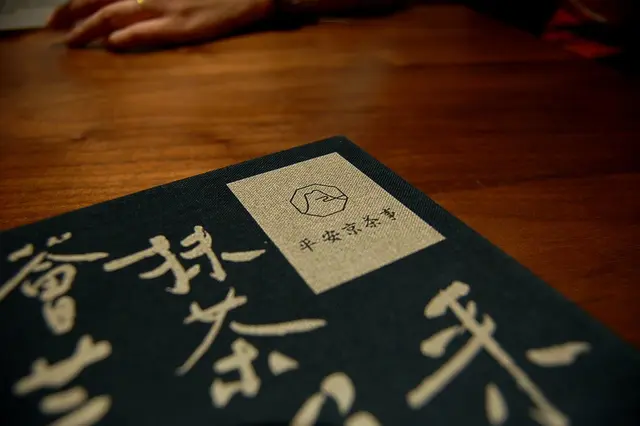 平安京茶事
平
抹茶